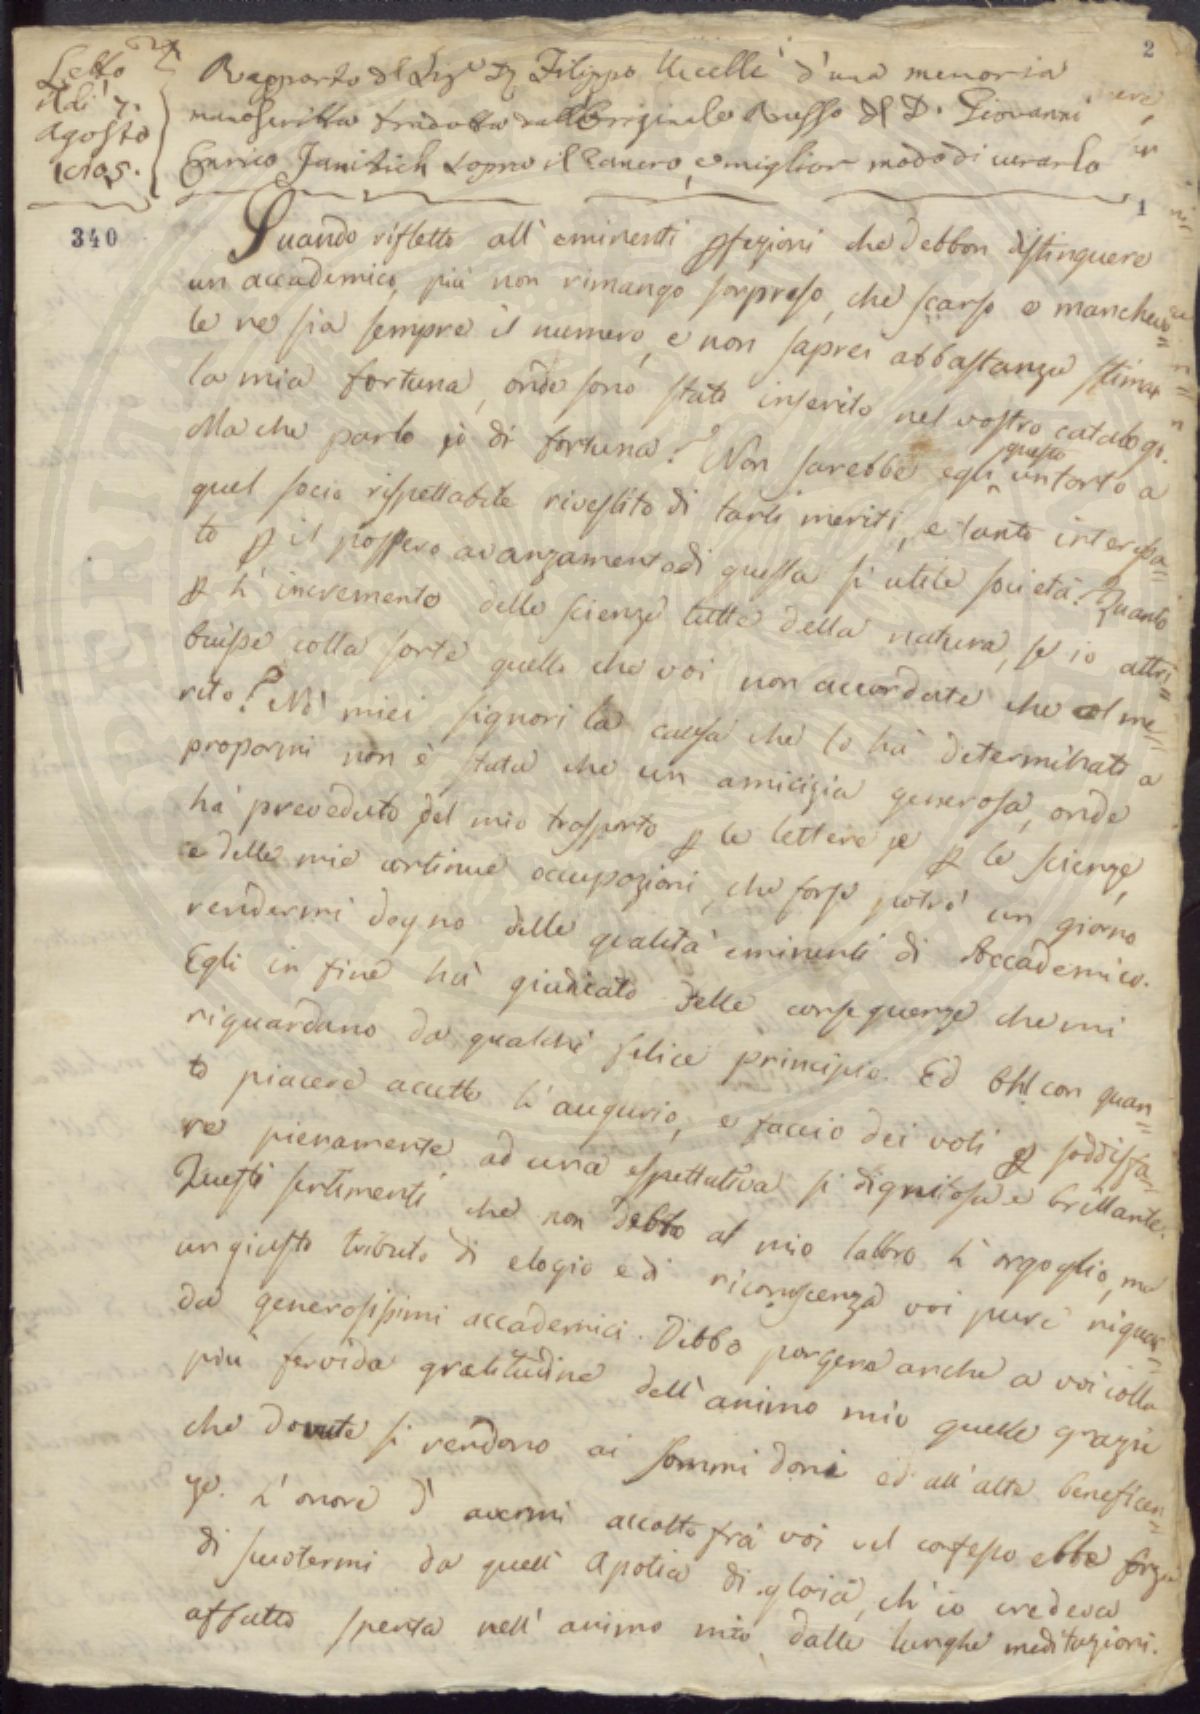 2
Letto
il dì 7.
Agosto
1805.
Rapporto del Sigr Dr Filippo Uccelli d'una memoria
manoscritta tradotta dall'originale Russo del D. Giovanni
Enrico Janisich sopra il Cancro, e miglior modo di curarlo
1
340
Quando rifletto all'eminenti pfezioni che debbon distinguere
un accademico, più non rimango sorpreso, che scarso e manchevo=
le ne sia sempre il numero, e non saprei abbastanza stimar
la mia fortuna, onde sono stato inserito nel vostro catalogo.
Ma che parlo io di fortuna? Non sarebbe egli questo un torto a
quel socio rispettabile rivestito di tanti meriti, e tanto interessa=
to p il prospero avanzamento di questa sì utile società? Quanto
p l'incremento delle scienze tutte della natura, se io attri=
buisse colla sorte quello che voi non accordate che al me=
rito? Nò miei signori la causa che lo hà determinato a
propormi non è stata che un amicizia generosa, onde
hà preveduto del mio trasporto p le lettere e p le scienze,
e delle mie continue occupazioni, che forse potrò un giorno
rendermi degno delle qualità eminenti di Accademico.
Egli in fine hà giudicato delle conseguenze che mi
riguardano da qualche felice principio. Ed Oh! con quan=
to piacere accetto l'augurio, e faccio dei voti p soddisfa=
re pienamente ad una espettativa sì dignitosa e brillante.
Questi sentimenti che non debbo al mio labbro l'orgoglio, ma
un giusto tributo di elogio e di riconoscenza voi pure riguar=
da generosissimi accademici. Debbo porgere anche a voi colla
più fervida gratitudine dell'animo mio quelle grazie
che dovute si rendono ai sommi doni ed all'alte beneficen=
ze. L'onore d'avermi accolto frà voi nel consesso ebbe forza
di scuotermi da quell'apatia di gloria, ch'io credeva
affatto spenta nell'animo mio, dalle lunghe meditazioni.